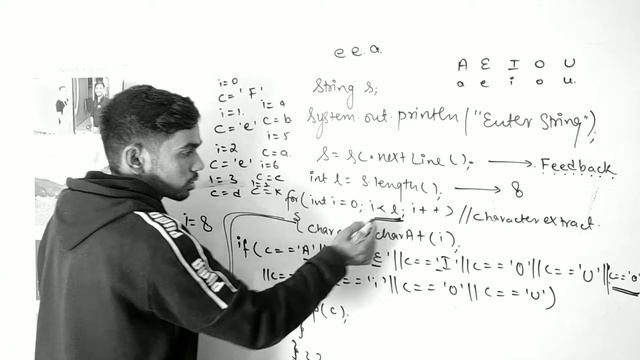 e e a
A E I O U
a e i o u
String s;
System.out.println("Enter String");
s = sc.nextLine(); → Feedback
int l = s.length(); → 8
for(int i=0; i<l; i++) //character extract.
{
charAt(i);
if(c=='A' 'E'||c=='I'||c=='O'||c=='U'||c=='a'
||c== =='i'||c=='o'||c=='u')
(c);
}
} } }
i=0
c='F'
i=1
c='e'
i=2
c='e'
i=3
c=d
i=4
c=b
i=5
c=a
i=6
c=c
c=k
i=8
PUMA